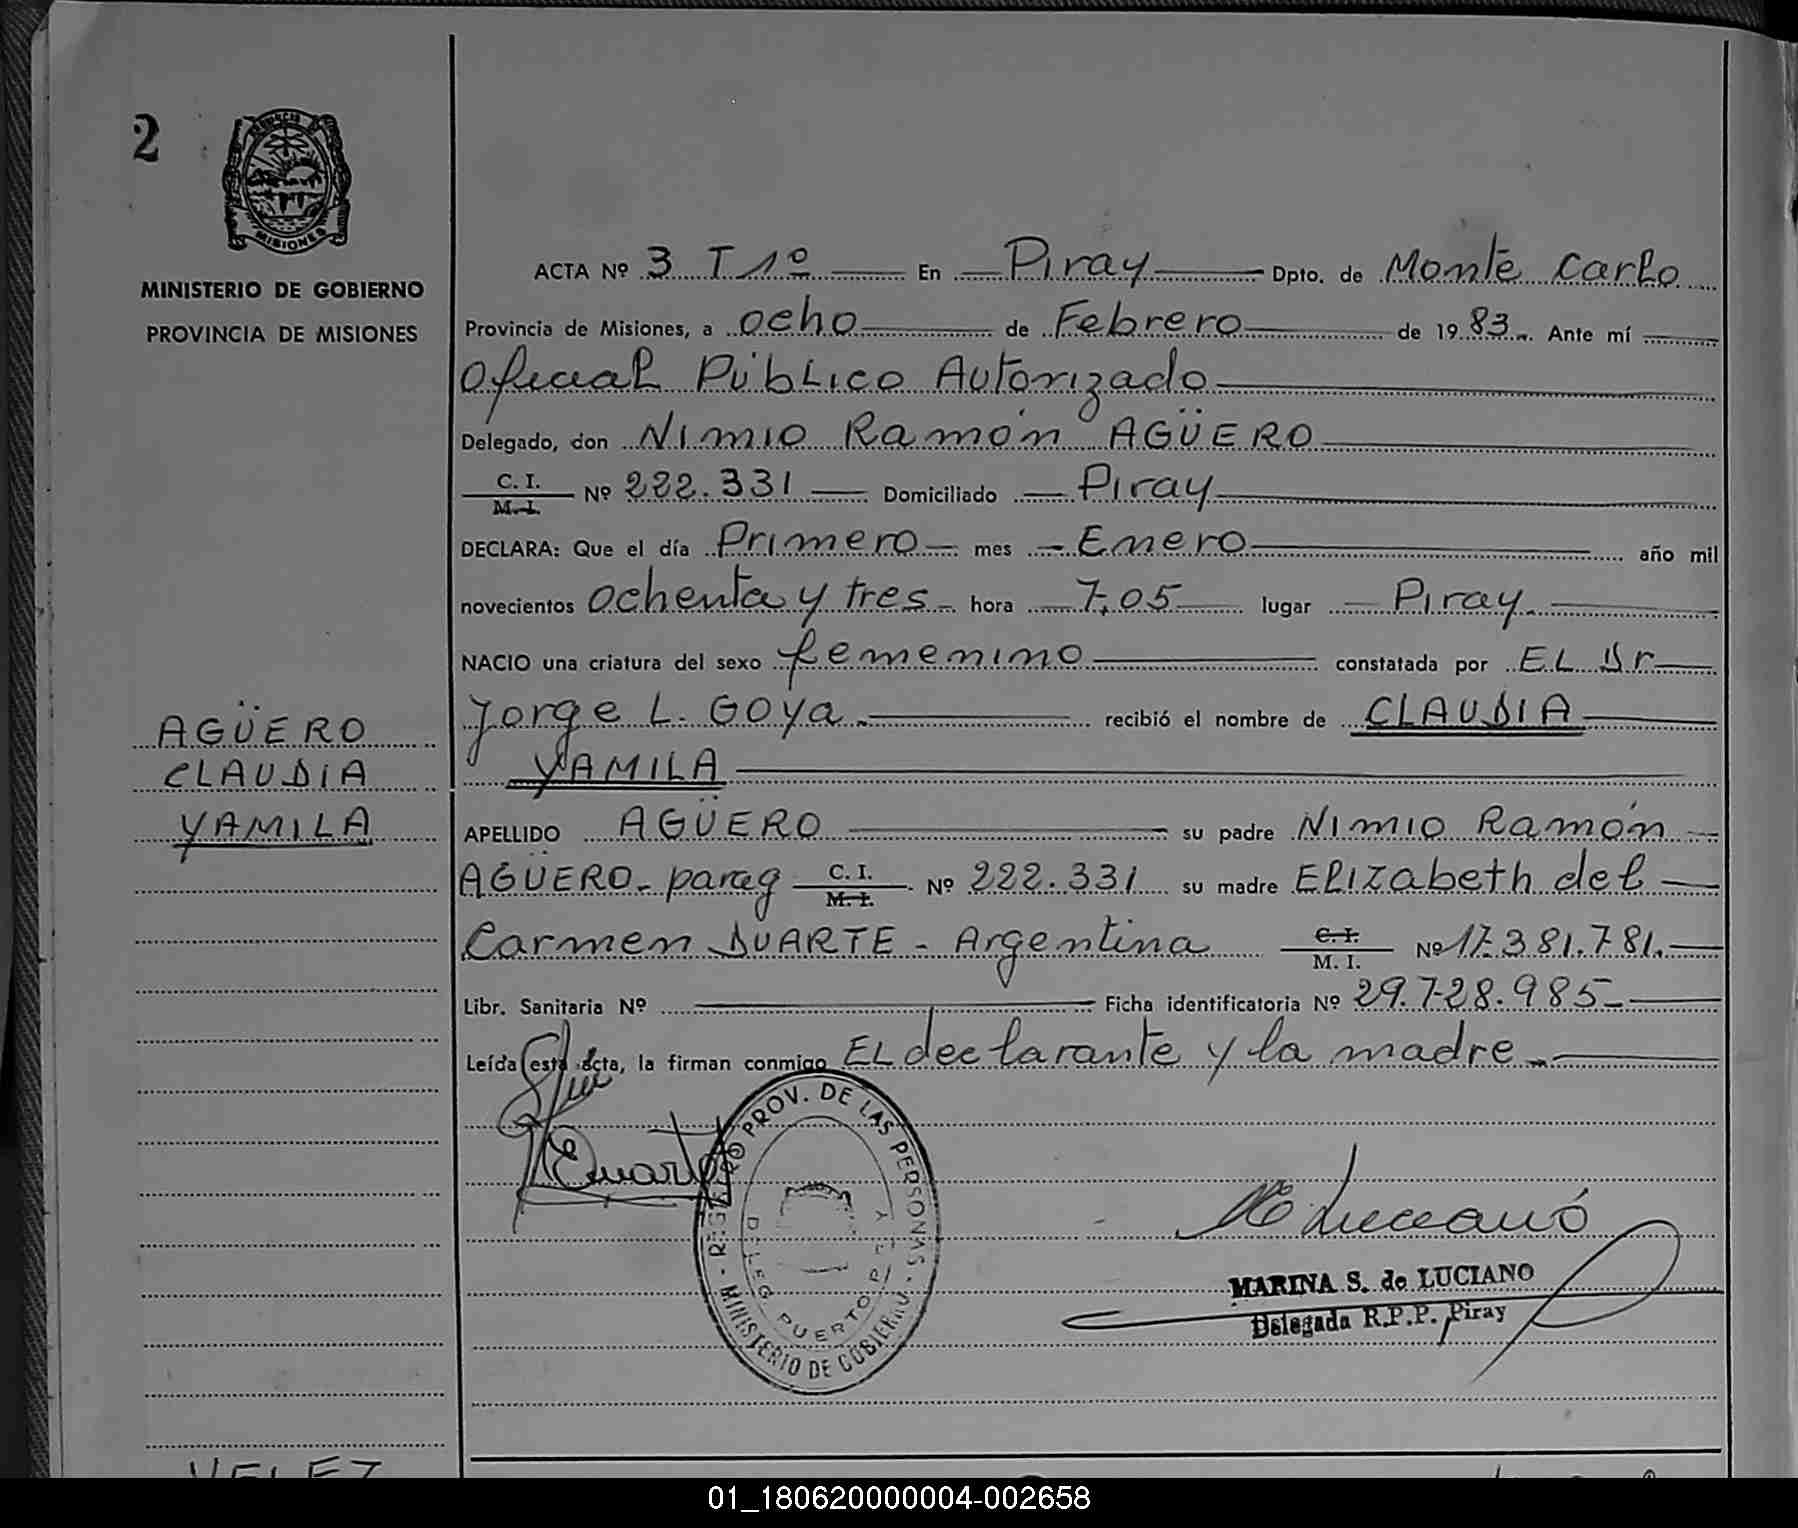 2
PROVINCIA D
MISIONES
MINISTERIO DE GOBIERNO
PROVINCIA DE MISIONES
AGÜERO
CLAUDIA
YAMILA
VELEZ
ACTA Nº 3 T 1º En Piray Dpto. de Monte Carlo
Provincia de Misiones, a ocho de Febrero de 1983. Ante mí
Oficial Público Autorizado
Delegado, don Nimio Ramón AGÜERO
C. I. M. I. Nº 222.331 Domiciliado Piray
DECLARA: Que el día Primero mes Enero año mil
novecientos ochenta y tres hora 7,05 lugar Piray.
NACIO una criatura del sexo femenino constatada por EL Dr
Jorge L. GOYA. recibió el nombre de CLAUDIA
YAMILA
APELLIDO AGÜERO su padre Nimio Ramón
AGÜERO - parag C. I. M. I. Nº 222.331 su madre Elizabeth del
Carmen DUARTE - Argentina C. I. M. I. Nº 17.381.781.
Libr. Sanitaria Nº Ficha identificatoria Nº 29.728.985
Leída esta acta, la firman conmigo EL declarante y la madre.
EDuarte
REGISTRO PROV. DE LAS PERSONAS - MINISTERIO DE GOBIERNO -
DELEG PUERTO PIRAY
MARINA S. de LUCIANO
Delegada R.P.P. Piray
01_180620000004-002658